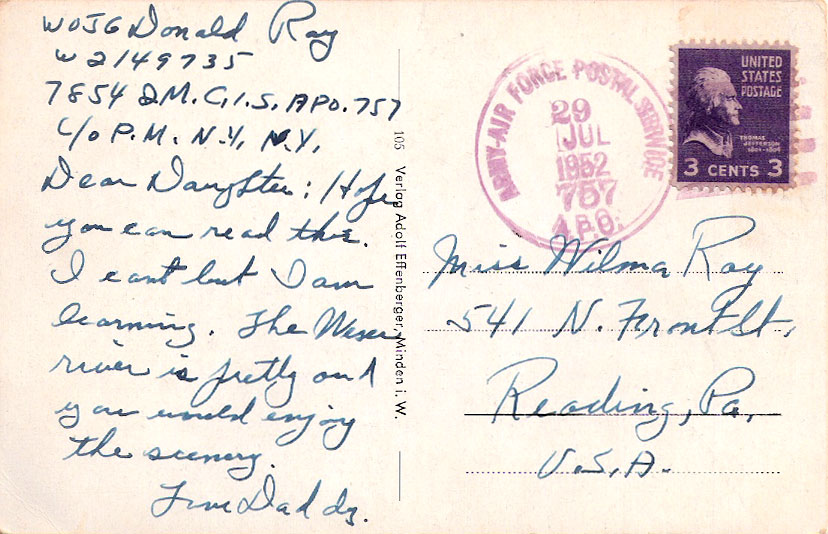 WOJG Donald Ray
W2149735
7854 Q.M.C.I.S. APO. 757
C/o P.M. N.Y. N.Y.
Dear Daughter: Hope
you can read this.
I cant but I am
learning. The Weser
river is pretty and
you would enjoy
the scenery.
Love Daddy.
105 Verlag Adolf Effenberger, Minden i. W.
ARMY-AIR FORCE POSTAL SERVICE
29
JUL
1952
757
A.P.O.
UNITED
STATES
POSTAGE
THOMAS
JEFFERSON
1801-1809
3 CENTS 3
Miss Wilma Ray
541 N. Front St,
Reading, Pa,
U.S.A.